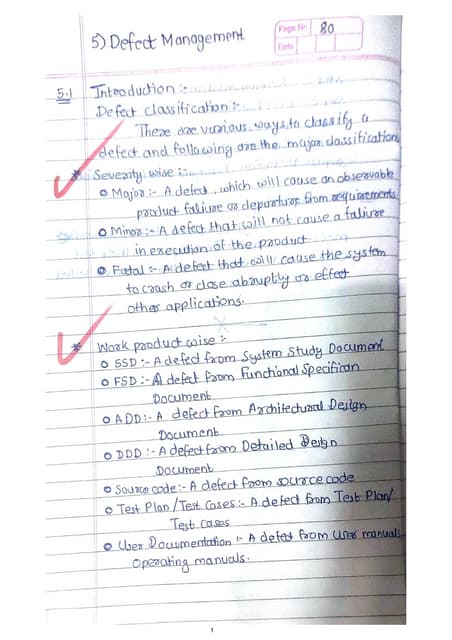 Page No 80
Date
5) Defect Management
5.1 Introduction :-
Defect classification :-
There are various ways to classify a
defect and following are the major classification
* Severity wise :-
o Major :- A defect, which will cause an observable
product faliure or departure from requirements
o Minor :- A defect that will not cause a faliure
in execution of the product
o Fatal :- A defect that will cause the system
to crash or close abruptly or effect
other applications.
* Work product wise :-
o SSD :- A defect from System Study Document
o FSD :- A defect from Functional Specifican
Document
o ADD :- A defect from Architectural Design
Document
o DDD :- A defect from Detailed Design
Document
o Source code :- A defect from source code
o Test Plan / Test Cases :- A defect from Test Plan/
Test cases
o User Documentation :- A defect from User manuals
Operating manuals.
1